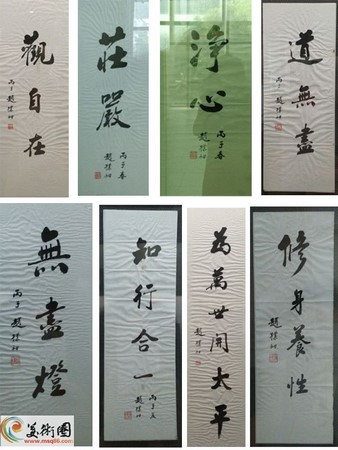 觀自在
丙子 趙樸初
莊嚴
丙子春
趙樸初
淨心
丙子春
趙樸初
道無盡
丙子 趙樸初
無盡燈
丙子 趙樸初
知行合一
丙子春
趙樸初
為萬世開太平
趙樸初
修身養性
趙樸初
美術圈
www.msq86.com